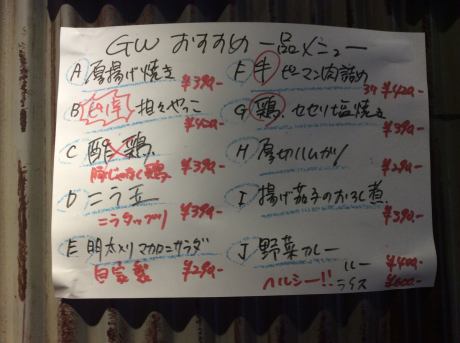 GW おすすめ 一品メニュー
A 厚揚げ焼き
¥390-
B 旨辛 担々やっこ
¥420-
C 酢鶏
豚じゃなく鶏 ¥390-
D ニラ玉
ニラタップリ ¥390-
E 明太入り マカロニサラダ
自家製 ¥290-
F 牛 ピーマン肉詰め
¥420-
G 鶏 セセリ塩焼き
¥390-
H 厚切りハムカツ
¥290-
I 揚げ茄子のおろし煮
¥390-
J 野菜カレー
ルー ¥400-
ヘルシー!! ライス ¥600-